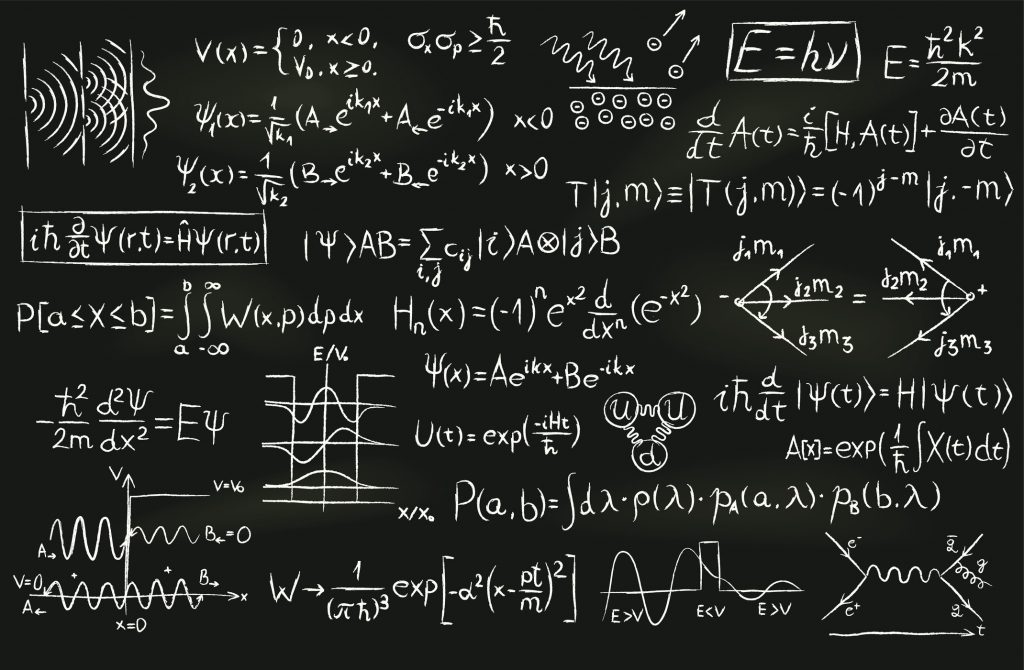 V(x) = { 0, x<0, V₀, x≥0.
σₓσₚ ≥ ħ/2
E = hν
E = ħ²k²/2m
Ψ₁(x) = 1/√k₁ (A→ e^{ik₁x} + A← e^{-ik₁x}) x<0
d/dt A(t) = i/ħ [H, A(t)] + ∂A(t)/∂t
Ψ₂(x) = 1/√k₂ (B→ e^{ik₂x} + B← e^{-ik₂x}) x>0
T|j,m⟩ ≡ |T(j,m)⟩ = (-1)^{j-m} |j,-m⟩
iħ ∂/∂t Ψ(r,t) = ĤΨ(r,t)
|Ψ⟩AB = Σ_{i,j} c_{ij} |i⟩A⊗|j⟩B
j₁m₁
j₂m₂
j₃m₃
- = +
j₁m₁
j₂m₂
j₃m₃
P[a≤X≤b] = ∫_a^b ∫_{-∞}^{∞} W(x,p)dpdx
Hₙ(x) = (-1)ⁿ e^{x²} d/dxⁿ (e^{-x²})
E/V₀
x/x₀
Ψ(x) = Ae^{ikx} + Be^{-ikx}
iħ d/dt |Ψ(t)⟩ = H|Ψ(t)⟩
-ħ²/2m d²Ψ/dx² = EΨ
U(t) = exp(-iHt/ħ)
U U
d
A[x] = exp(1/ħ ∫X(t)dt)
P(a,b) = ∫dλ·ρ(λ)·p_A(a,λ)·p_B(b,λ)
V
V=V₀
A→
B←=0
V=0
+ +
A←
B→
x
x=0
W → 1/(πħ)³ exp[-α²(x - pt/m)²]
E>V E<V E>V
e⁻
e⁺
g
t